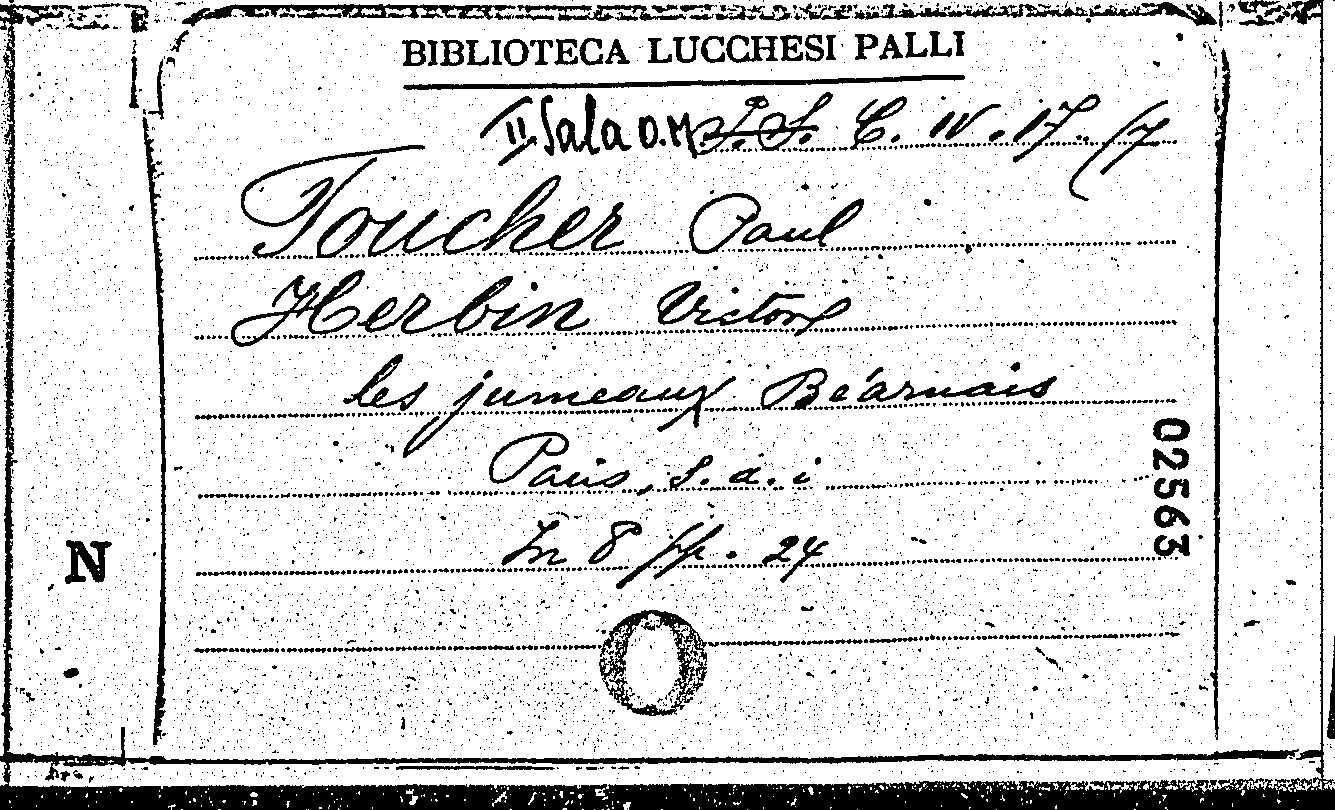 BIBLIOTECA LUCCHESI PALLI
II Sala O.M. P.S. C. IV. 17. (7
Foucher Paul
Herbin Victor
les jumeaux Béarnais
Paris, s.d.i
In 8 pp. 24
02563
N